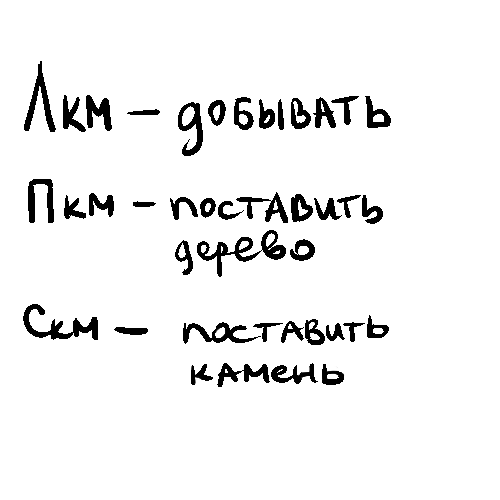 Лкм – добывать
Пкм – поставить
дерево
Скм – поставить
камень